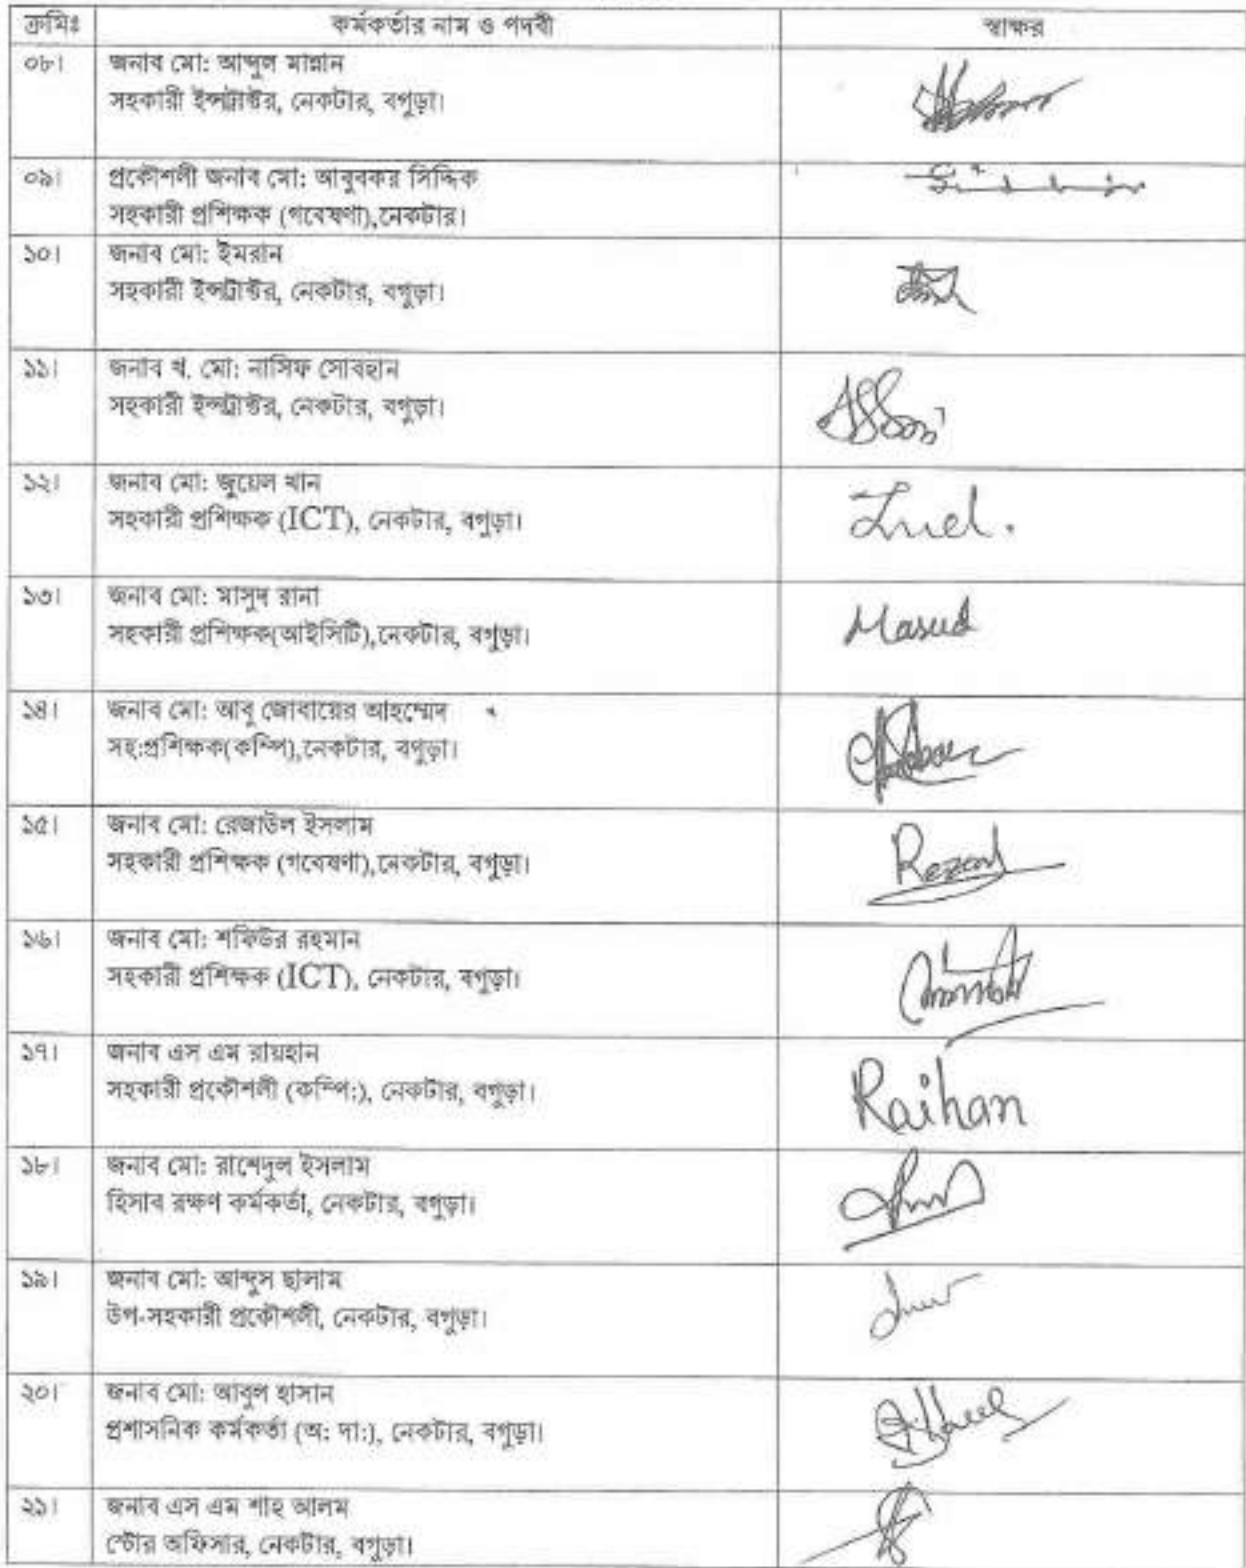 ক্রমিঃ কর্মকর্তার নাম ও পদবী স্বাক্ষর
০৮। জনাব মো: আব্দুল মান্নান
সহকারী ইন্সট্রাক্টর, নেকটার, বগুড়া।
০৯। প্রকৌশলী জনাব মো: আবুবকর সিদ্দিক
সহকারী প্রশিক্ষক (গবেষণা),নেকটার।
১০। জনাব মো: ইমরান
সহকারী ইন্সট্রাক্টর, নেকটার, বগুড়া।
১১। জনাব খ. মো: নাসিফ সোবহান
সহকারী ইন্সট্রাক্টর, নেকটার, বগুড়া।
১২। জনাব মো: জুয়েল খান
সহকারী প্রশিক্ষক (ICT), নেকটার, বগুড়া।
১৩। জনাব মো: মাসুদ রানা
সহকারী প্রশিক্ষক(আইসিটি),নেকটার, বগুড়া।
Masud
১৪। জনাব মো: আবু জোবায়ের আহম্মেদ
সহ:প্রশিক্ষক(কম্পি),নেকটার, বগুড়া।
১৫। জনাব মো: রেজাউল ইসলাম
সহকারী প্রশিক্ষক (গবেষণা),নেকটার, বগুড়া।
১৬। জনাব মো: শফিউর রহমান
সহকারী প্রশিক্ষক (ICT), নেকটার, বগুড়া।
১৭। জনাব এস এম রায়হান
সহকারী প্রকৌশলী (কম্পি:), নেকটার, বগুড়া।
Raihan
১৮। জনাব মো: রাশেদুল ইসলাম
হিসাব রক্ষণ কর্মকর্তা, নেকটার, বগুড়া।
১৯। জনাব মো: আব্দুস ছালাম
উপ-সহকারী প্রকৌশলী, নেকটার, বগুড়া।
২০। জনাব মো: আবুল হাসান
প্রশাসনিক কর্মকর্তা (অ: দা:), নেকটার, বগুড়া।
২১। জনাব এস এম শাহ আলম
স্টোর অফিসার, নেকটার, বগুড়া।